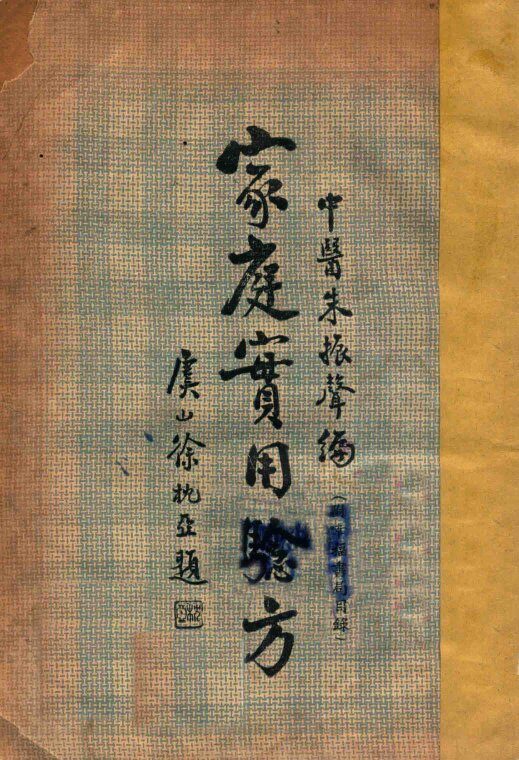 中醫朱振聲編
家庭實用驗方
虞山徐枕亞題